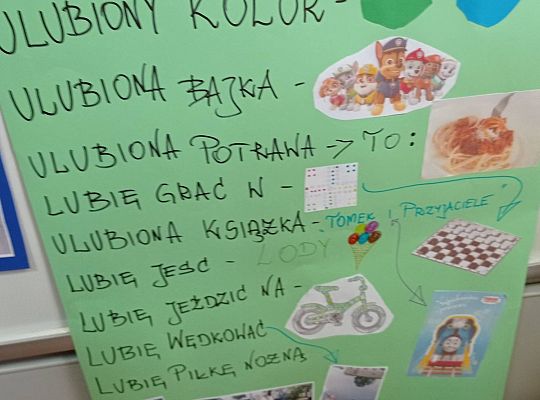 ULUBIONY KOLOR -
ULUBIONA BAJKA -
ULUBIONA POTRAWA -> TO:
LUBIĘ GRAĆ W -
ULUBIONA KSIĄŻKA - TOMEK I PRZYJACIELE
LUBIĘ JEŚĆ - LODY
LUBIĘ JEŹDZIĆ NA -
LUBIĘ WĘDKOWAĆ
LUBIĘ PIŁKĘ NOŻNĄ